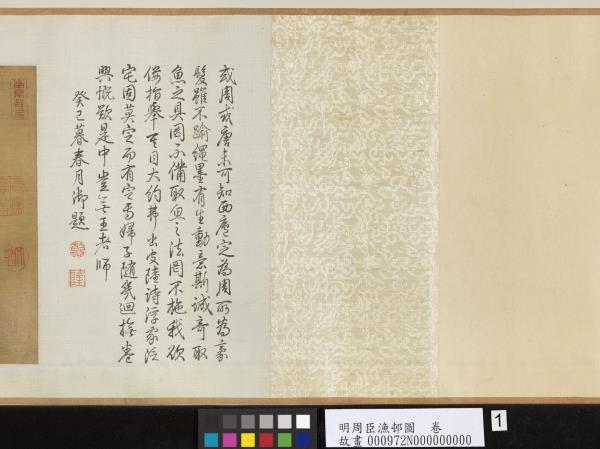 或周或唐未可知西廬定為周所為豪
髮雖不踰繩墨有生動意斯誠奇取
魚之具罔不備取魚之法罔不施我欲
僂指舉其目大約弗出皮陸詩浮家泛
宅固莫定而有定焉婦子隨幾迴撫卷
興慨歎是中豈無王者師
癸巳暮春月御題
乾
隆
明周臣漁邨圖 卷
故畫 000972N000000000
1